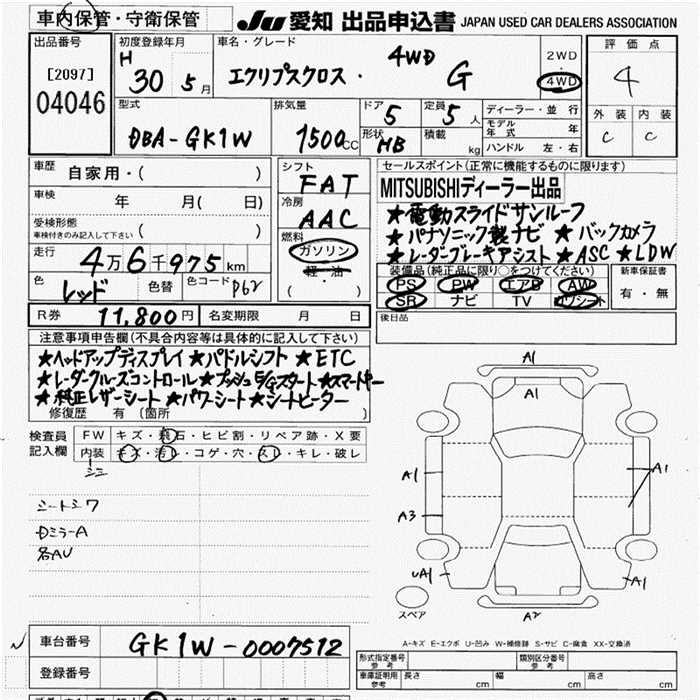 車内保管・守衛保管
JU 愛知 出品申込書 JAPAN USED CAR DEALERS ASSOCIATION
出品番号
[2097]
04046
初度登録年月
H 30 5月
車名・グレード
エクリプスクロス・ 4WD G
2WD
・
4WD
評価点
4
外装 内装
C C
型式
DBA-GK1W
排気量
1500cc
ドア 5
形状 HB
定員 5人
積載 kg
ディーラー・並行
モデル年式 年
ハンドル 左・右
車歴 自家用・( )
車検 年 月( 日)
受検形態
車検付きのみ記入して下さい ( )
走行 4万6千975km
色 レッド 色替 色コード P62
シフト
FAT
冷房
AAC
燃料
ガソリン
軽・油
( )
セールスポイント(正常に機能するものに限ります)
MITSUBISHIディーラー出品
★電動スライドサンルーフ
★パナソニック製ナビ ★バックカメラ
★レーダーブレーキアシスト ★ASC ★LDW
装備品(純正品に限り○をつけてください)
PS PW エアB AW
SR ナビ TV 革シート
新車保証書
有・無
R券 11,800円 名変期限 月 日
後日品
注意事項申告欄(不具合内容等は具体的に記入して下さい)
★ヘッドアップディスプレイ ★パドルシフト ★ETC
★レーダークルーズコントロール ★プッシュE/Gスタート ★スマートキー
★純正レザーシート ★パワーシート ★シートヒーター
修復歴 有 〔箇所 〕
検査員記入欄
FW キズ・飛石・ヒビ割・リペア跡・X要
内装 キズ・汚レ・コゲ・穴・スレ・キレ・破レ
シミ
シートシワ
DミラーA
各AU
A1
A1
A1
A1
A3
UA1
A1
A2
スペア
A-キズ E-エクボ U-凹み W-補修跡 S-サビ C-腐食 XX-交換済
車台番号 GK1W-0007512
登録番号
形式指定番号
参考
類別区分番号
参考
車庫証明用
参考
長さ cm 幅 cm 高さ cm